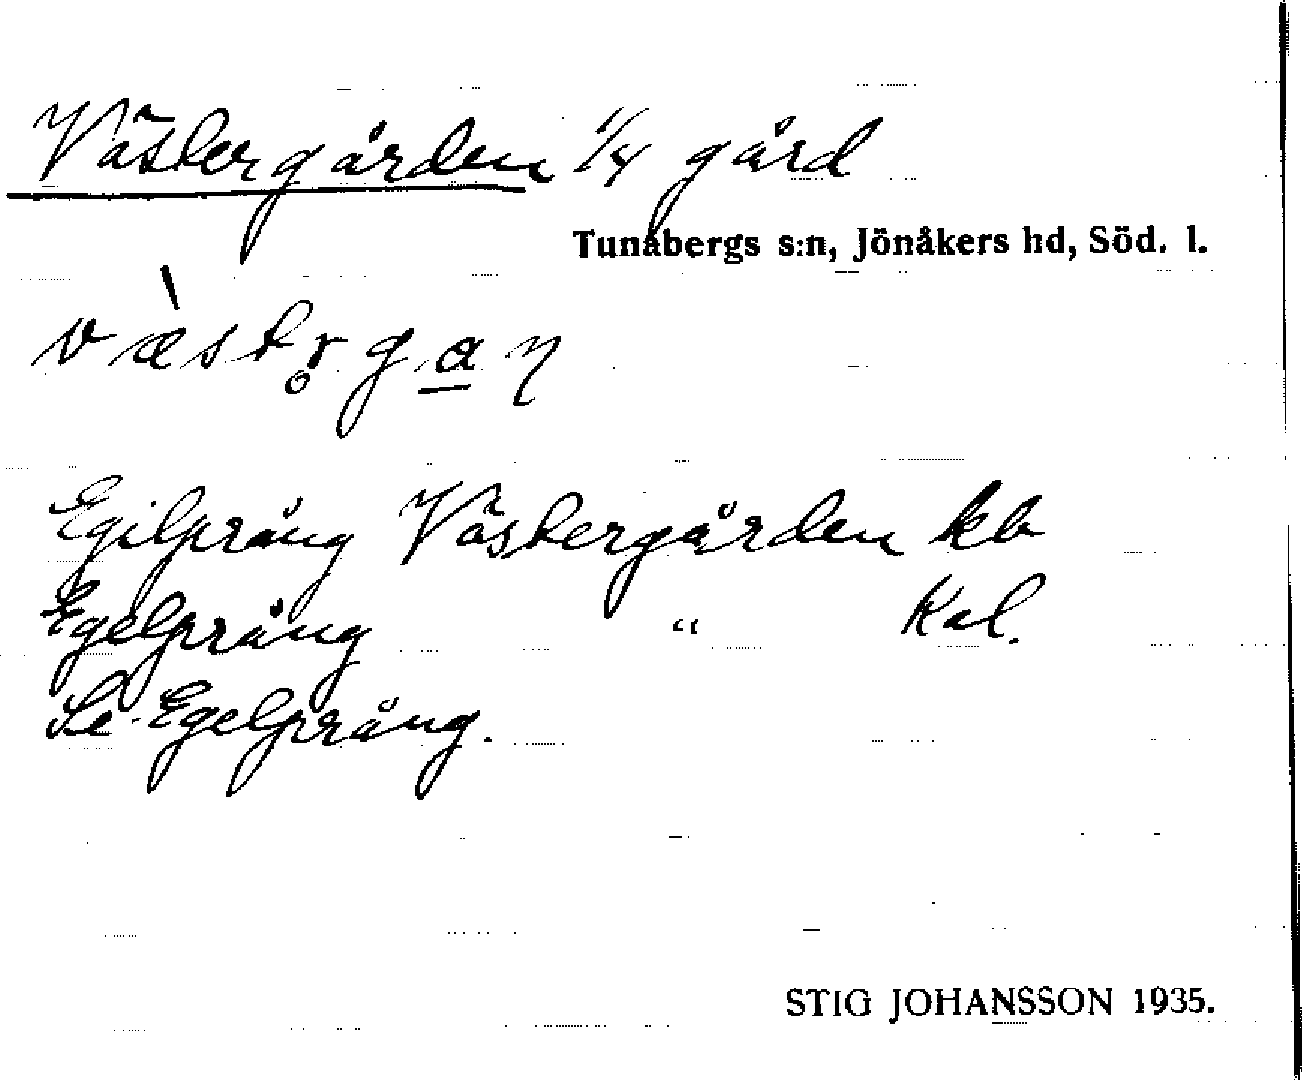 Västergården 1/4 gård
Tunabergs s:n, Jönåkers hd, Söd. l.
v æ̀ s t r̥ g a̲ ŋ
Egilspräng Västergården kb
Egelspräng " Kal.
Se Egelspräng.
STIG JOHANSSON 1935.